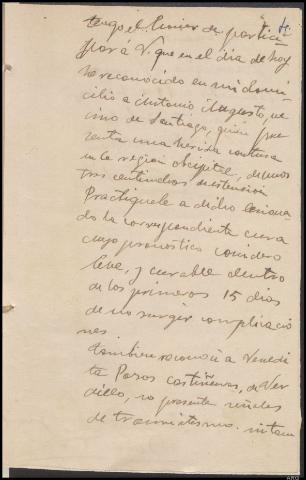 tengo el honor de partici
par á V. que en el dia de hoy
he reconocido en mi domi
cilio a Antonio Augusto, ve
cino de Santiago, quien pre
senta una herida contusa
en la región occipital, de unos
tres centimetros de extensión
Practiquele a dicho lesiona
do la correspondiente cura
cuyo pronostico considero
leve, y curable dentro
de los primeros 15 dias
de no surgir complicacio
nes.
Tambien reconocí a Benedi
ta Pazos Castiñeiras, de Ver
dillo, no presenta señales
de traumatismo.